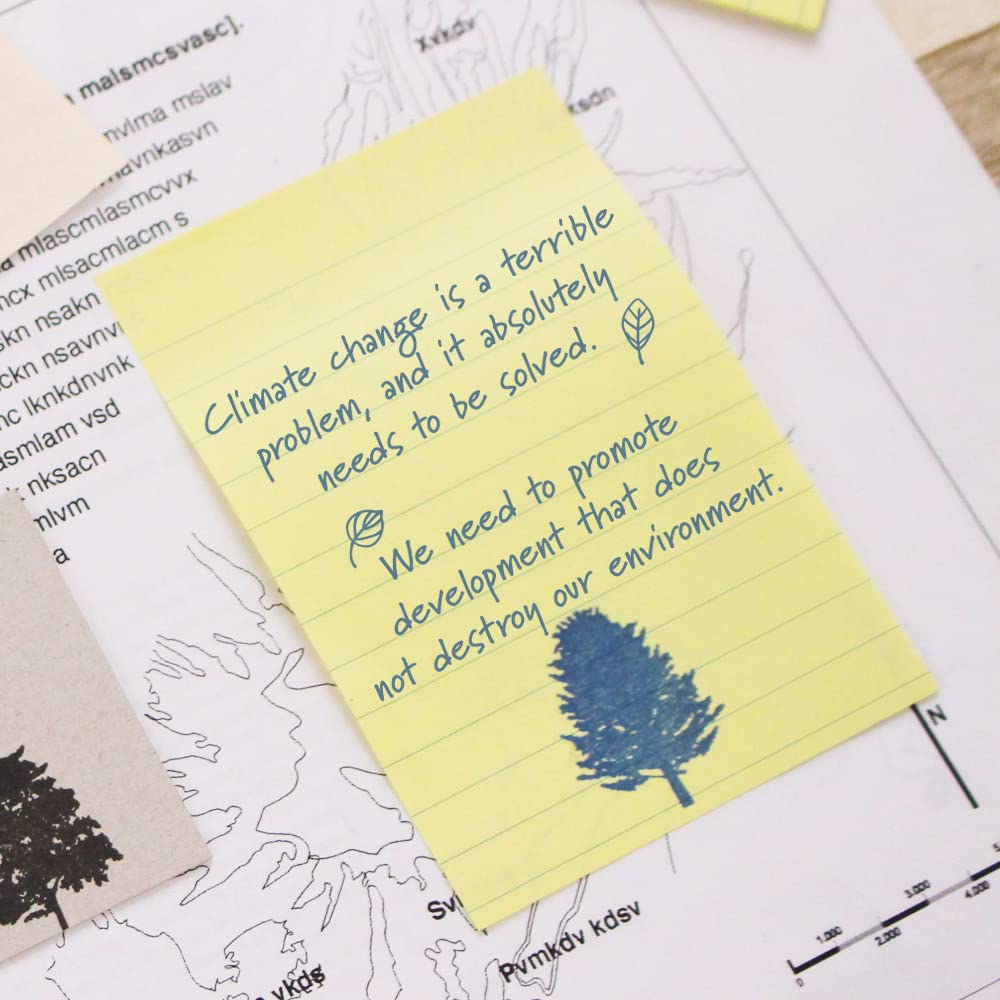 malsmcsvasc].
mslav
mlascmlasmcvvx
mcx mlsacmlacm s
nsakn
nsavnv
lknkdnvnk
asmlam vsd
nksacn
a
Xvkdv
ksdn
Climate change is a terrible
problem, and it absolutely
needs to be solved.
We need to promote
development that does
not destroy our environment.
N
Pvmkdv kdsv
vkds
1.000
2.000
3.000
4.000